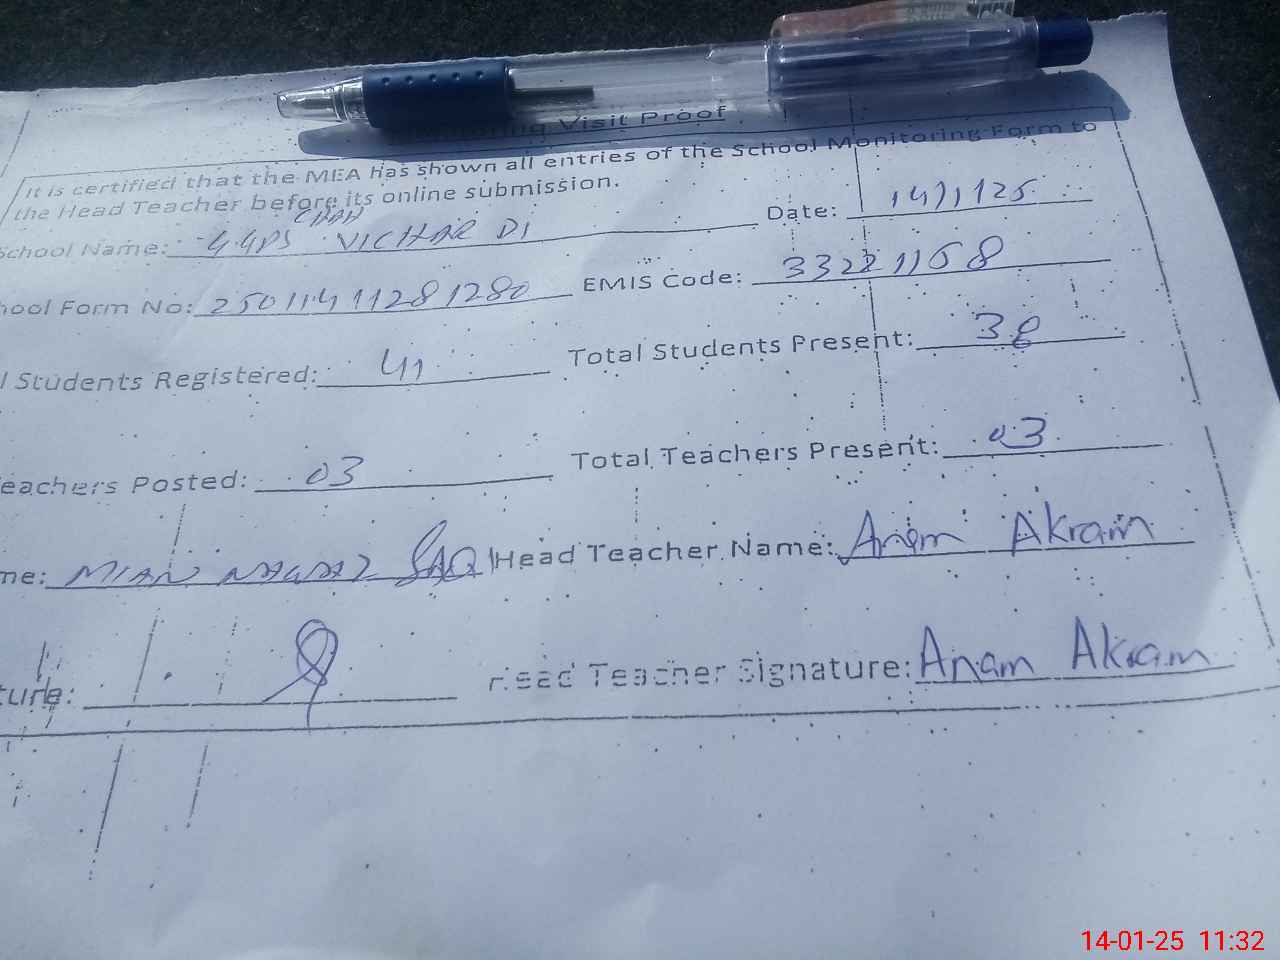 ring Visit Proof
It is certified that the MEA has shown all entries of the School Monitoring Form to
the Head Teacher before its online submission.
Date: 14/1/25
School Name: GGPS CHAH VICHAR DI
hool Form No: 25011411281280 EMIS Code: 33221168
l Students Registered: 41 Total Students Present: 38
eachers Posted: 03 Total Teachers Present: 03
me: MIAN Head Teacher Name: Anam Akram
ture: Head Teacher Signature: Anam Akram
14-01-25 11:32